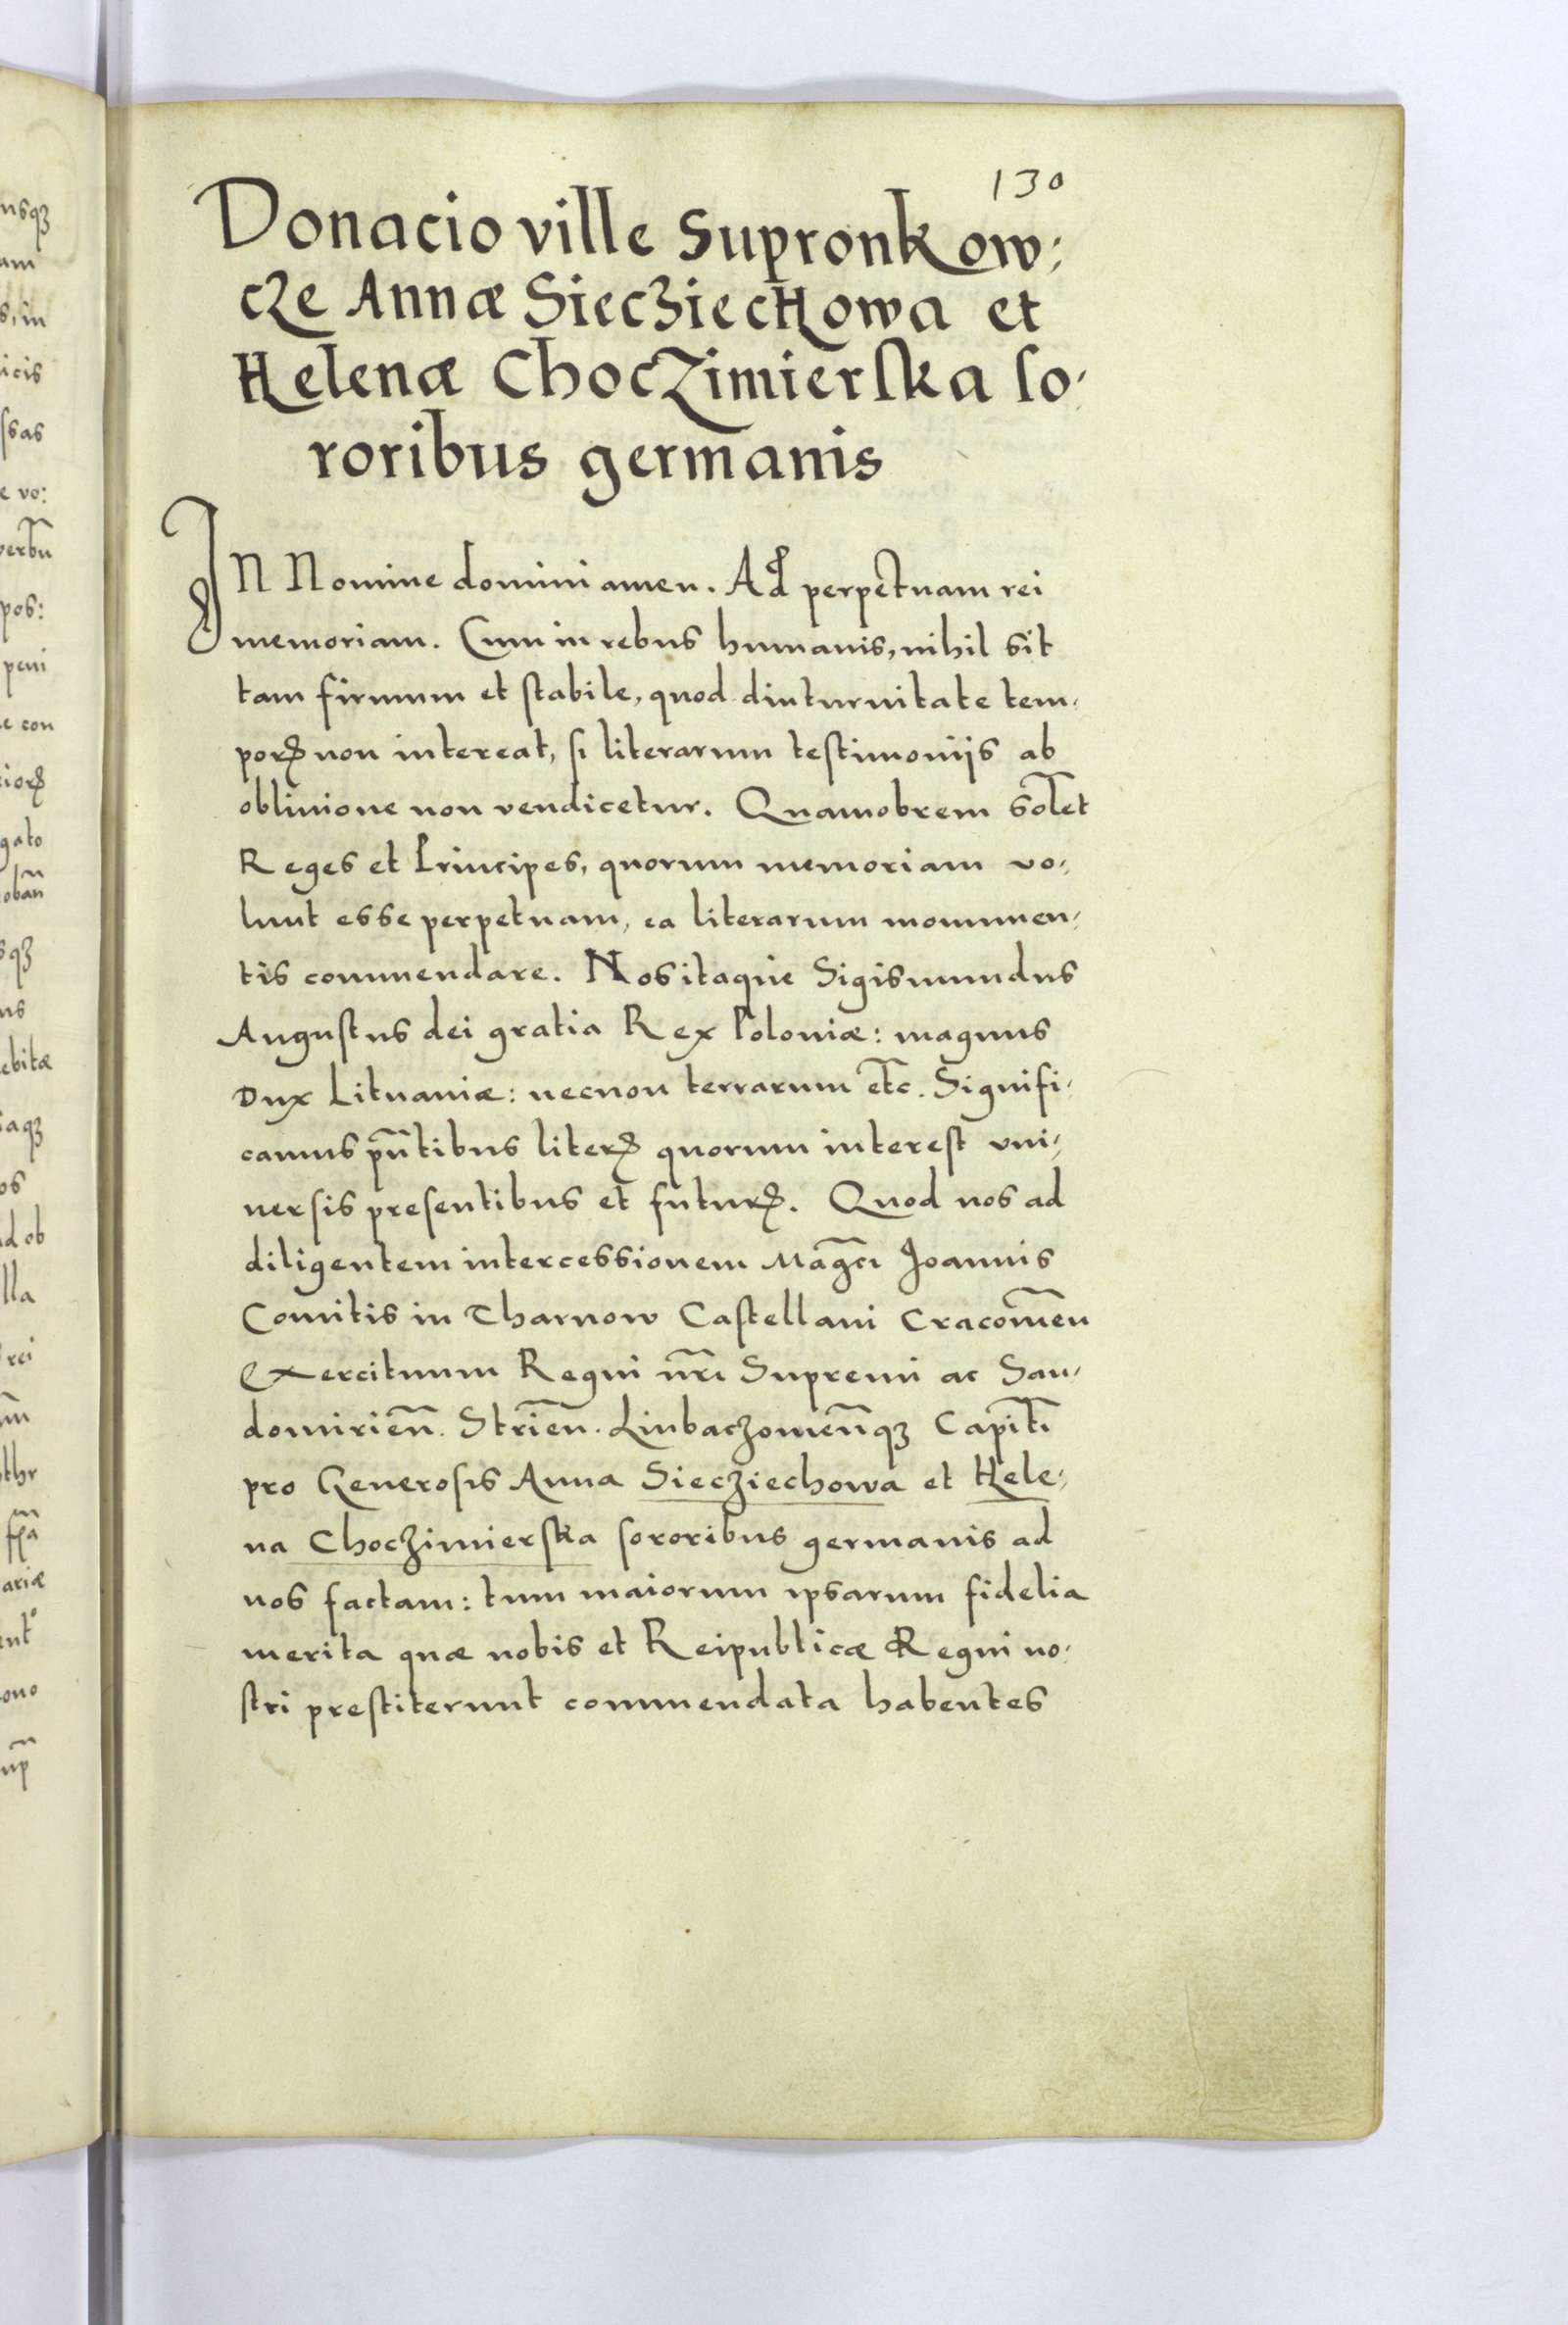 130
Donacio ville Supronkow;
cze Annæ Siecziechowa et
Helenæ Choczimierska so,
roribus germanis
In Nomine domini amen. Ad perpetuam rei
memoriam. Cum in rebus humanis, nihil sit
tam firmum et stabile, quod diuturnitate tem,
porꝝ non intereat, si literarum testimonijs ab
obliuione non vendicetur. Quamobrem sol̄et
Reges et Principes, quorum memoriam vo,
lunt esse perpetuam, ea literarum monumen,
tis commendare. Nos itaque Sigismundus
Augustus dei gratia Rex Poloniæ: magnus
Dux Lituaniæ: necnon terrarum et̄c. Signifi,
camus pn̄tibus literꝝ quorum interest vni,
uersis presentibus et futurꝝ. Quod nos ad
diligentem intercessionem Mag̅ci Joannis
Comitis in Tharnow Castellani Cracouien̄
Exercituum Regni nr̄i Supremi ac San,
domirien̄. Strien̄. Liubaczouien̄qꝫ Capit̄i
pro Generosis Anna Siecziechowa et Hele,
na Choczimierska sororibus germanis ad
nos factam: tum maiorum ipsarum fidelia
merita quæ nobis et Reipublicæ Regni no,
stri prestiterunt commendata habentes